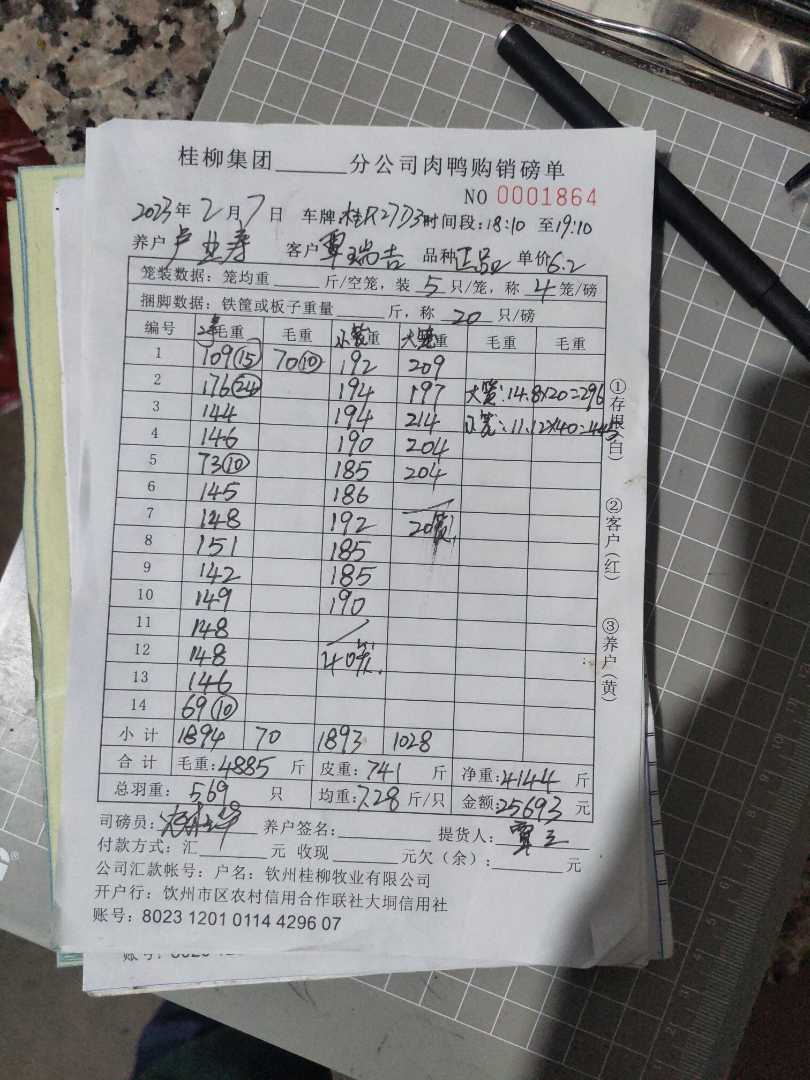 桂柳集团______分公司肉鸭购销磅单
NO 0001864
2023年2月7日 车牌:桂R27D3 时间段:18:10 至19:10
养户 卢业寿 客户 覃瑞吉 品种 正品 单价6.2
笼装数据:笼均重______斤/空笼,装 5 只/笼,称 4 笼/磅
捆脚数据:铁筐或板子重量______斤,称 20 只/磅
编号 毛重 毛重 小笼重 大笼重 毛重 毛重
1 109(15) 70(10) 192 209
2 176(24) 194 197 大笼:14.8×20=296
3 144 194 214 小笼:11.12×40=445
4 146 190 204
5 73(10) 185 204
6 145 186
7 148 192 20笼
8 151 185
9 142 185
10 149 190
11 148
12 148 40笼
13 146
14 69(10)
小计 1894 70 1893 1028
合计 毛重:4885 斤 皮重:741 斤 净重:4144 斤
总羽重:569 只 均重:7.28 斤/只 金额:25693 元
司磅员: 养户签名:______ 提货人:
付款方式:汇______元 收现______元欠(余):______元
公司汇款帐号:户名:钦州桂柳牧业有限公司
开户行:钦州市区农村信用合作联社大垌信用社
账号:8023 1201 0114 4296 07
①存根(白)
②客户(红)
③养户(黄)